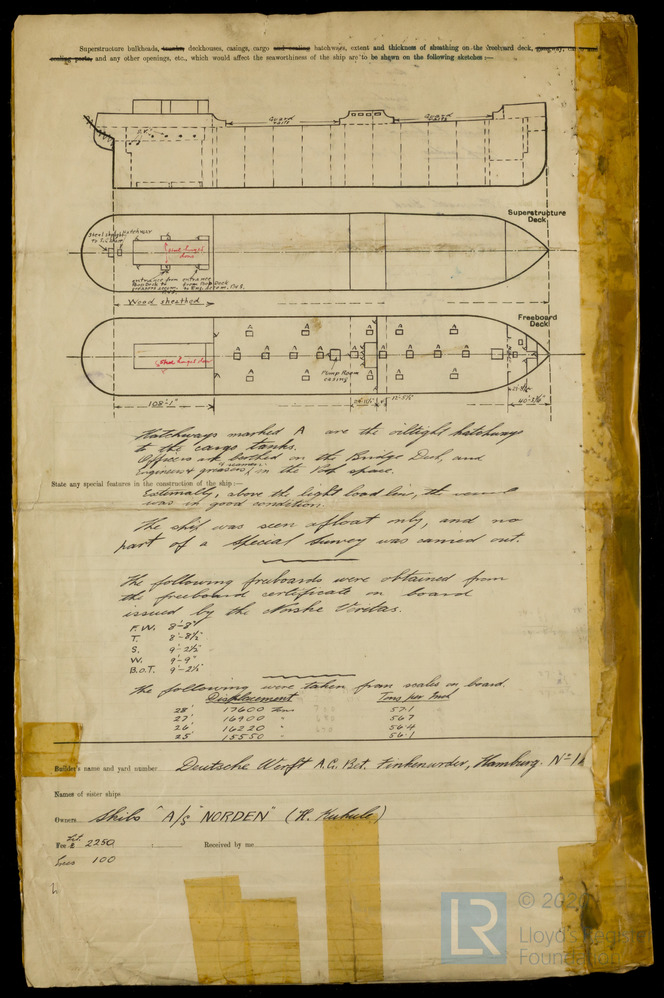 Superstructure bulkheads, trunks, deckhouses, casings, cargo and coaling hatchways, extent and thickness of sheathing on the freeboard deck, gangway, cargo and
coaling ports, and any other openings, etc., which would affect the seaworthiness of the ship are to be shown on the following sketches :—
Superstructure
Deck
Hatchway
entrance from
Poop Deck to
entrance
from Poop Deck
Wood sheathed
Freeboard
Deck
A A A A A
A A A A A A A
Pump Room
casing
A A A A A
108'-1"
Hatchways marked A are the oiltight hatchways
to the cargo tanks.
Officers are berthed on the Bridge Deck, and
Engineers & greasers & seamen in the Poop space.
State any special features in the construction of the ship :—
Externally, above the light load line, the vessel
was in good condition.
The ship was seen afloat only, and no
part of a Special Survey was carried out.
The following freeboards were obtained from
the freeboard certificate on board
issued by the Norske Veritas.
F.W. 8'-8"
T. 8'-8½"
S. 9'-2½"
W. 9'-9"
B.O.T. 9'-2½"
The following were taken from scales on board
Displacement Tons per Inch
28' 17600 Tons 57.1
27' 16900 " 56.7
26' 16220 " 56.4
25' 15550 " 56.1
Builder's name and yard number Deutsche Werft A.G. Bet. Finkenwarder, Hamburg. Nº
Names of sister ships
Owners Skibs "A/S" NORDEN" (H.
Fee £ 2250 : : Received by me
100
LR
© 202
Lloyd's Register
Foundation